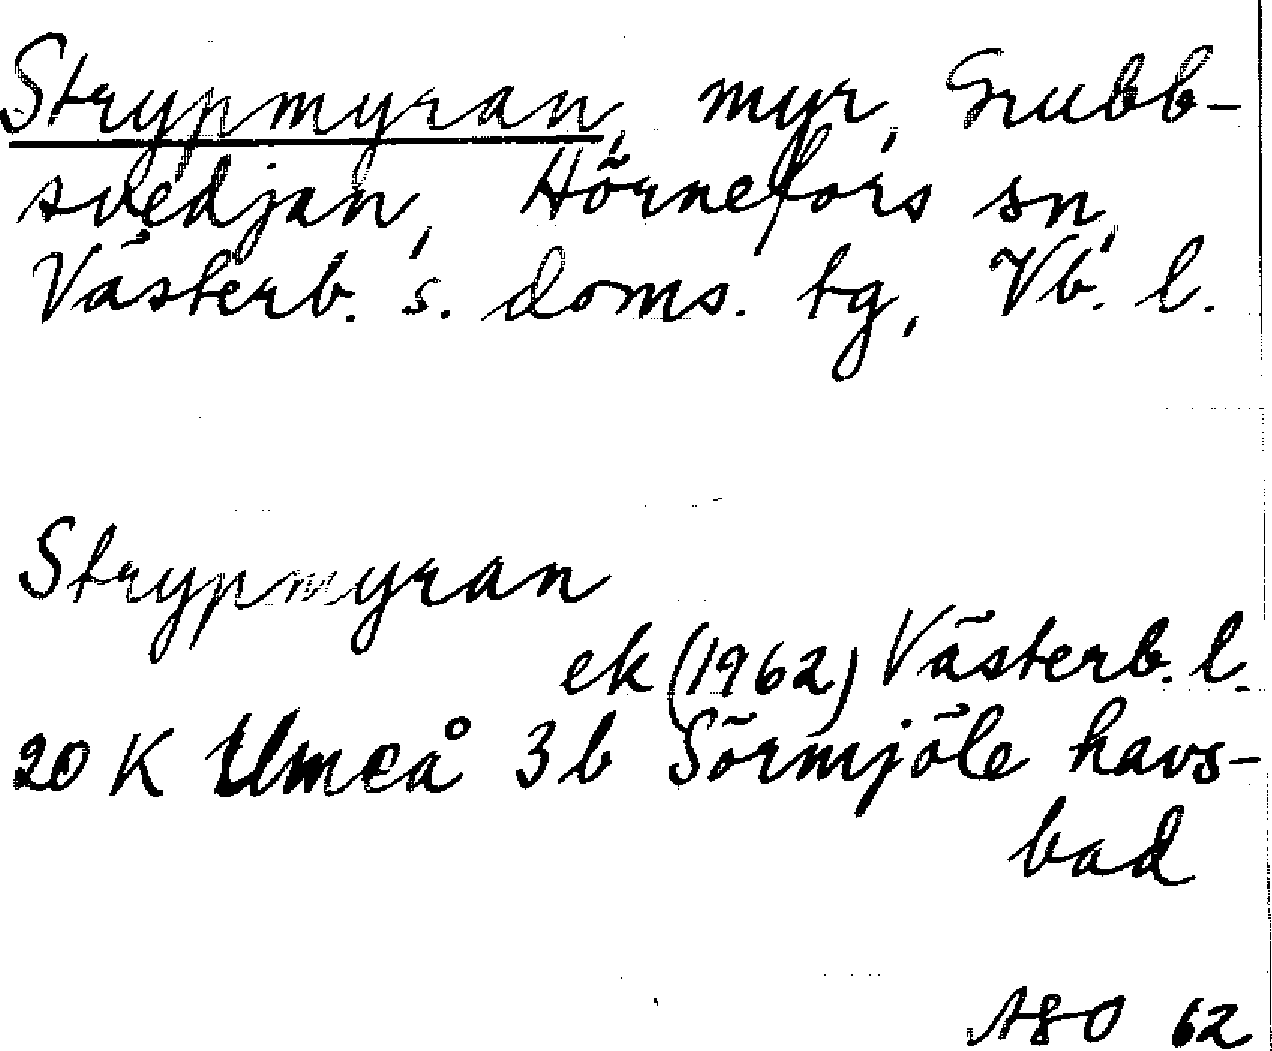 Strypmyran, myr, Grubb-
svedjan, Hörnefors sn,
Västerb. s. doms. tg, Vb. l.
Strypmyran
ek (1962) Västerb. l.
20 K Umeå 3b Sörmjöle havs-
bad
62